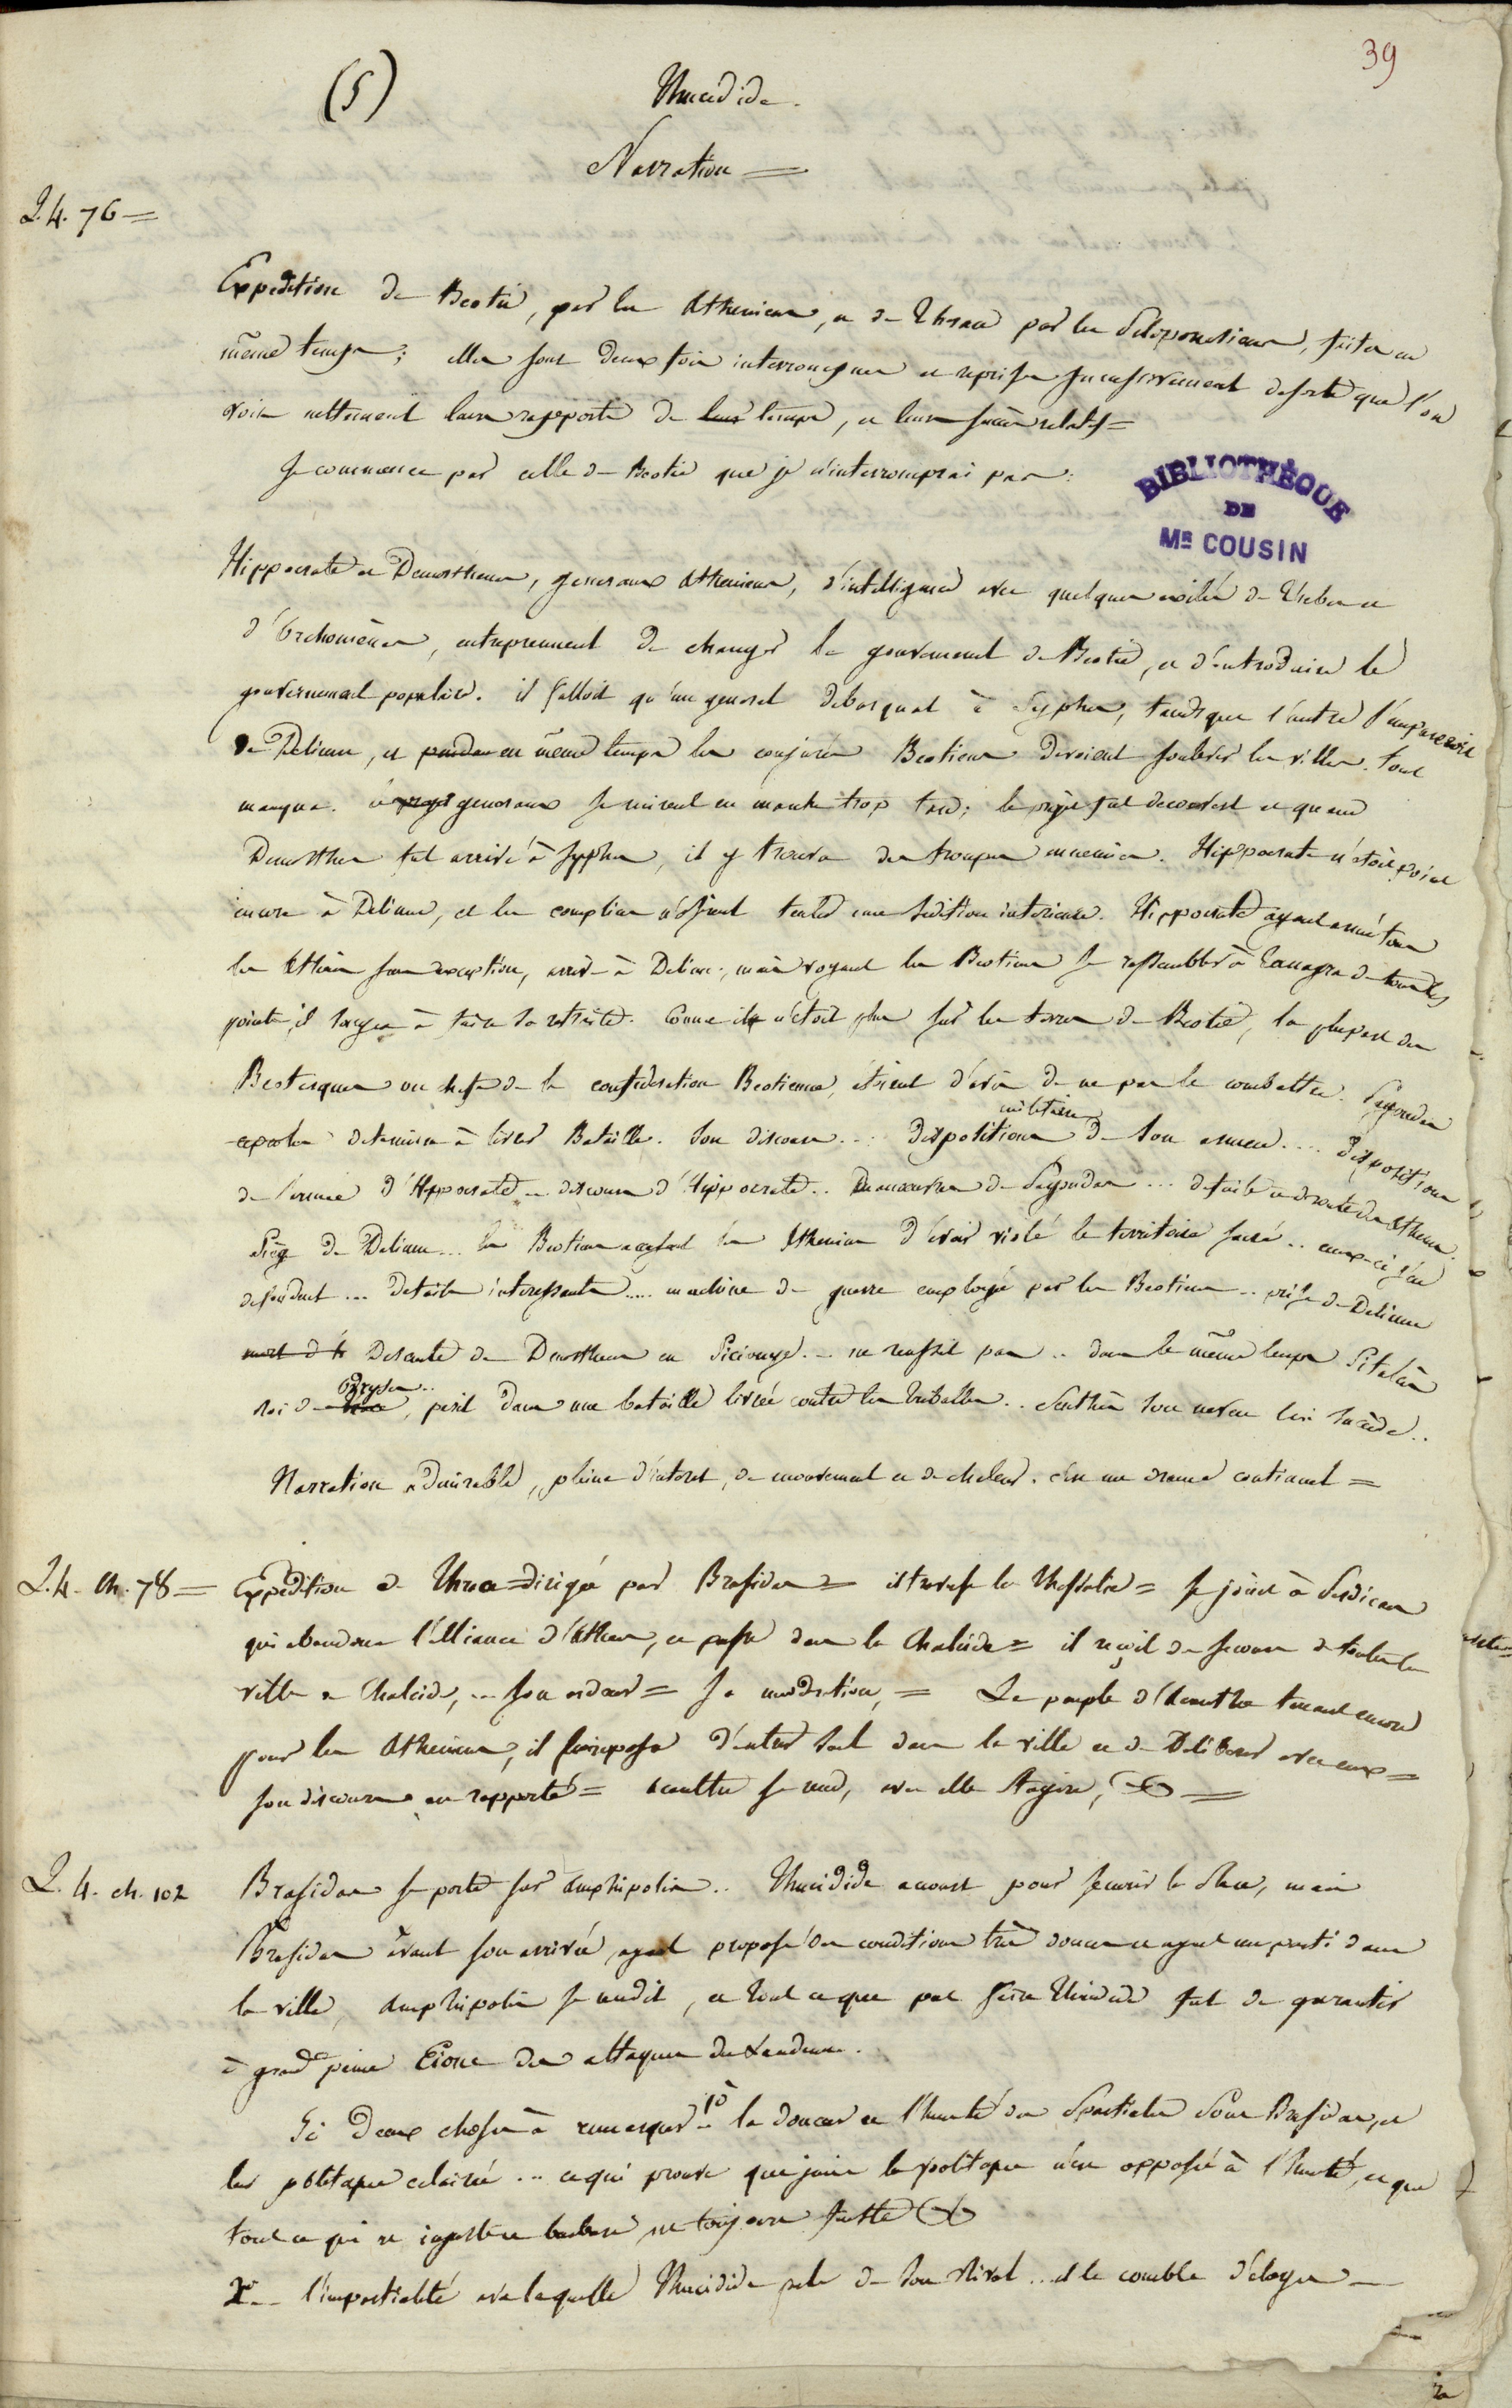 39
(5)
Thucidide.
Narration =
L. 4. 76 =
Expedition de Beotie, par les Atheniens, et de Thrace par les Peloponesiens, faites en
même temps; elles sont deux fois interrompues et reprises successivement de sorte que l'on
voit nettement leurs rapports de leur temps, et leurs succès relatifs =
Je commence par celle de Beotie que je n'interromprai pas.
BIBLIOTHÈQUE
DE
MR COUSIN
Hippocrate et Demosthenes, generaux Atheniens, d'intelligence avec quelques exilés de Thebes et
d'Orchomènes, entreprennent de changer le gouvernement de Beotie, et d'introduire le
gouvernement populaire. il falloit qu'un general debarquat à Syphes, tandis que l'autre s'empareroit
de Delium, et pendant en même temps les conjurés Beotiens devoient soulever les villes. tout
manqua. generaux se mirent en marche trop tard; le projet fut decouvert et quand
Demosthene fut arrivé à Syphes, il y trouva des troupes ennemies. Hippocrate n'étoit point
encore à Delium, et les complices n'osèrent tenter une sedition interieure. Hippocrate ayant armé tous
les Atheniens sans exception, arrive à Delium; mais voyant les Beotiens se rassembler à Tanagra de tous les
points, il songea à faire sa retraite. Comme il n'étoit plus sur les terres de Beotie, la plupart des
Beotarques ou chefs de la confederation Beotienne, étoient d'avis de ne pas le combattre. Pagondas
determine à livrer Bataille. son discours... dispositions militaires de son armée.... dispositions
de l'armée d'Hippocrate... discours d'Hippocrate.. manoeuvres de Pagondas... defaite et deroute des Atheniens.
siège de Delium... les Beotiens accusent les Atheniens d'avoir violé le territoire sacré.. ceux-ci s'en
defendent... details interessants..... machine de guerre employée par les Beotiens.. prise de Delium
Descente de Demosthene en Sicionye... ne reussit pas.. dans le même temps Sitalcès
roi des Odryses.., perit dans une bataille livrée contre les Triballes.. Seuthès son neveu lui succède..
Narration admirable, pleine d'interet, de mouvement et de chaleur. c'est un drame continuel =
L. 4. Ch. 78 =
Expedition de Thrace dirigée par Brasidas = il traverse la Thessalie = se joint à Perdicas
qui abandonne l'alliance d'Athenes, et passe dans la Chalcide = il reçoit des secours de toutes les
villes de Chalcide, ... son ardeur = sa moderation, = Le peuple d'Acanthe tenant encore
pour les Atheniens, il propose d'entrer seul dans la ville et de Deliberer avec eux =
son discours est rapporté = Acanthe se rend, avec elle Stagire, =
L. 4. ch. 102
Brasidas se porte sur Amphipolis.. Thucidide accourt pour secourir la place, mais
Brasidas avant son arrivée, ayant proposé des conditions très douces et ayant un parti dans
la ville, Amphipolis se rendit, et tout ce que put faire Thucidide fut de garantir
à grand peine Eione des attaques
Ici Deux choses à remarquer 1º la douceur et l'humanité des Spartiates sous Brasidas, et
leur politique eclairée... ce qui prouve que jamais la politique n'est opposée à l'humanité, et que
tout ce qui est injuste et barbare, est toujours funeste
2º.. l'impartialité avec laquelle Thucidide parle de son rival... il le comble d'éloges —